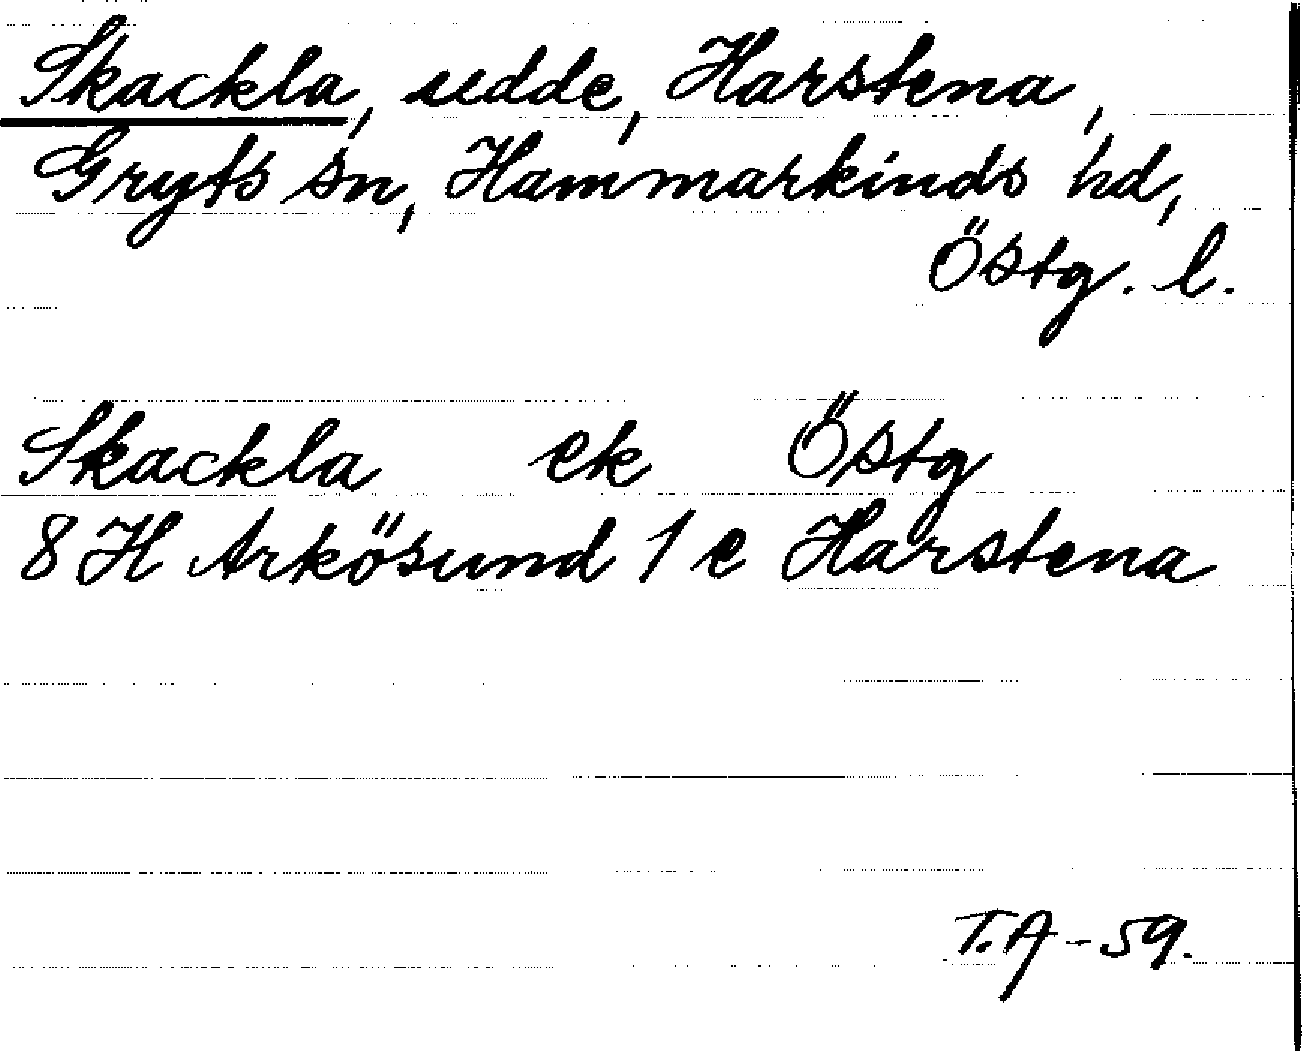 Skackla, udde, Harstena,
Gryts sn, Hammarkinds hd,
Östg. l.
Skackla ek Östg
8 H Arkösund 1 e Harstena
T.A -59.